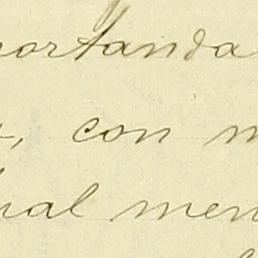 ortanda
, con m
al men